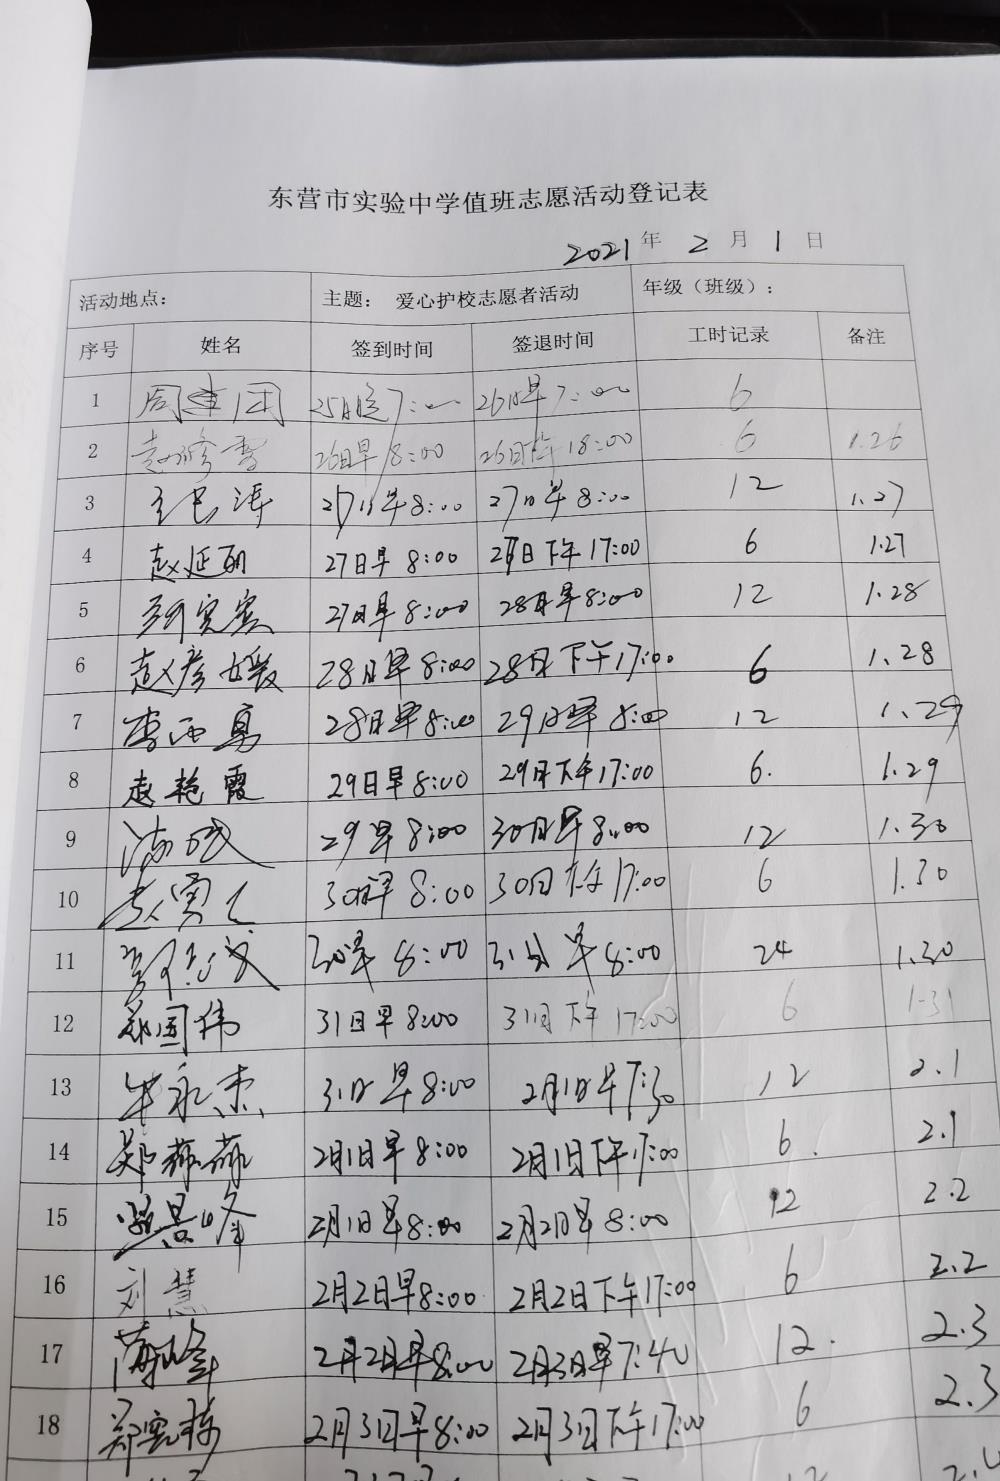 东营市实验中学值班志愿活动登记表
2021年 2月 1日
活动地点： 主题： 爱心护校志愿者活动 年级（班级）：
序号 姓名 签到时间 签退时间 工时记录 备注
1 25日 7:00 26日早7:00 6
2 赵 26日早 8:00 26日下午18:00 6 1.26
3 27日早8:00 27日早8:00 12 1.27
4 赵延 27日早 8:00 27日下午17:00 6 1.27
5 27日早8:00 28日早8:00 12 1.28
6 赵彦媛 28日早8:00 28日下午17:00 6 1.28
7 李西勇 28日早8:00 29日早8:00 12 1.29
8 赵艳霞 29日早8:00 29日下午17:00 6. 1.29
9 29早8:00 30日早8:00 12 1.30
10 8:00 30日下午17:00 6 1.30
11 8:00 31日早8:00 24 1.30
12 国伟 31日早8:00 31日下午17:00 6 1.31
13 牛永杰 31日早8:00 2月1日早7:30 12 2.1
14 郑 2月1日早8:00 2月1日下午17:00 6. 2.1
15 景峰 2月1日早8:00 2月2日早8:00 12 2.2
16 刘慧 2月2日早8:00 2月2日下午17:00 6 2.2
17 峰 2月2日早8:00 2月3日早7:40 12. 2.3
18 郑宪栋 2月3日早8:00 2月3日下午17:00 6 2.3